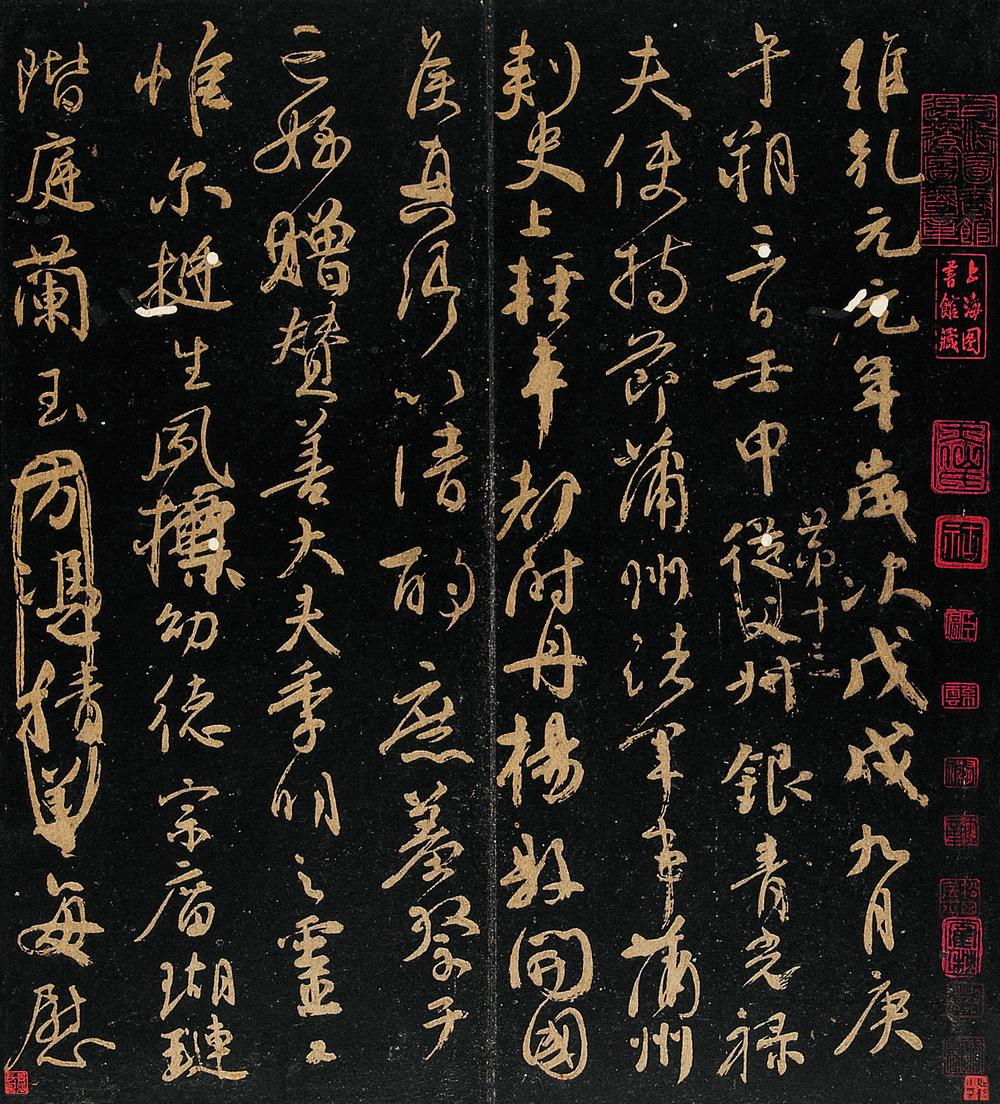 上海图書館藏
維乹元元年歲次戊戌九月庚
午朔三日壬申第十三從父叔銀青光祿
夫使持節蒲州諸軍事蒲州
刺史上輕車都尉丹楊縣開國
侯真卿以清酌庶羞祭于
亡姪贈贊善大夫季明之靈曰
惟尔挺生夙標幼德宗廟瑚璉
階庭蘭玉方憑積善每慰